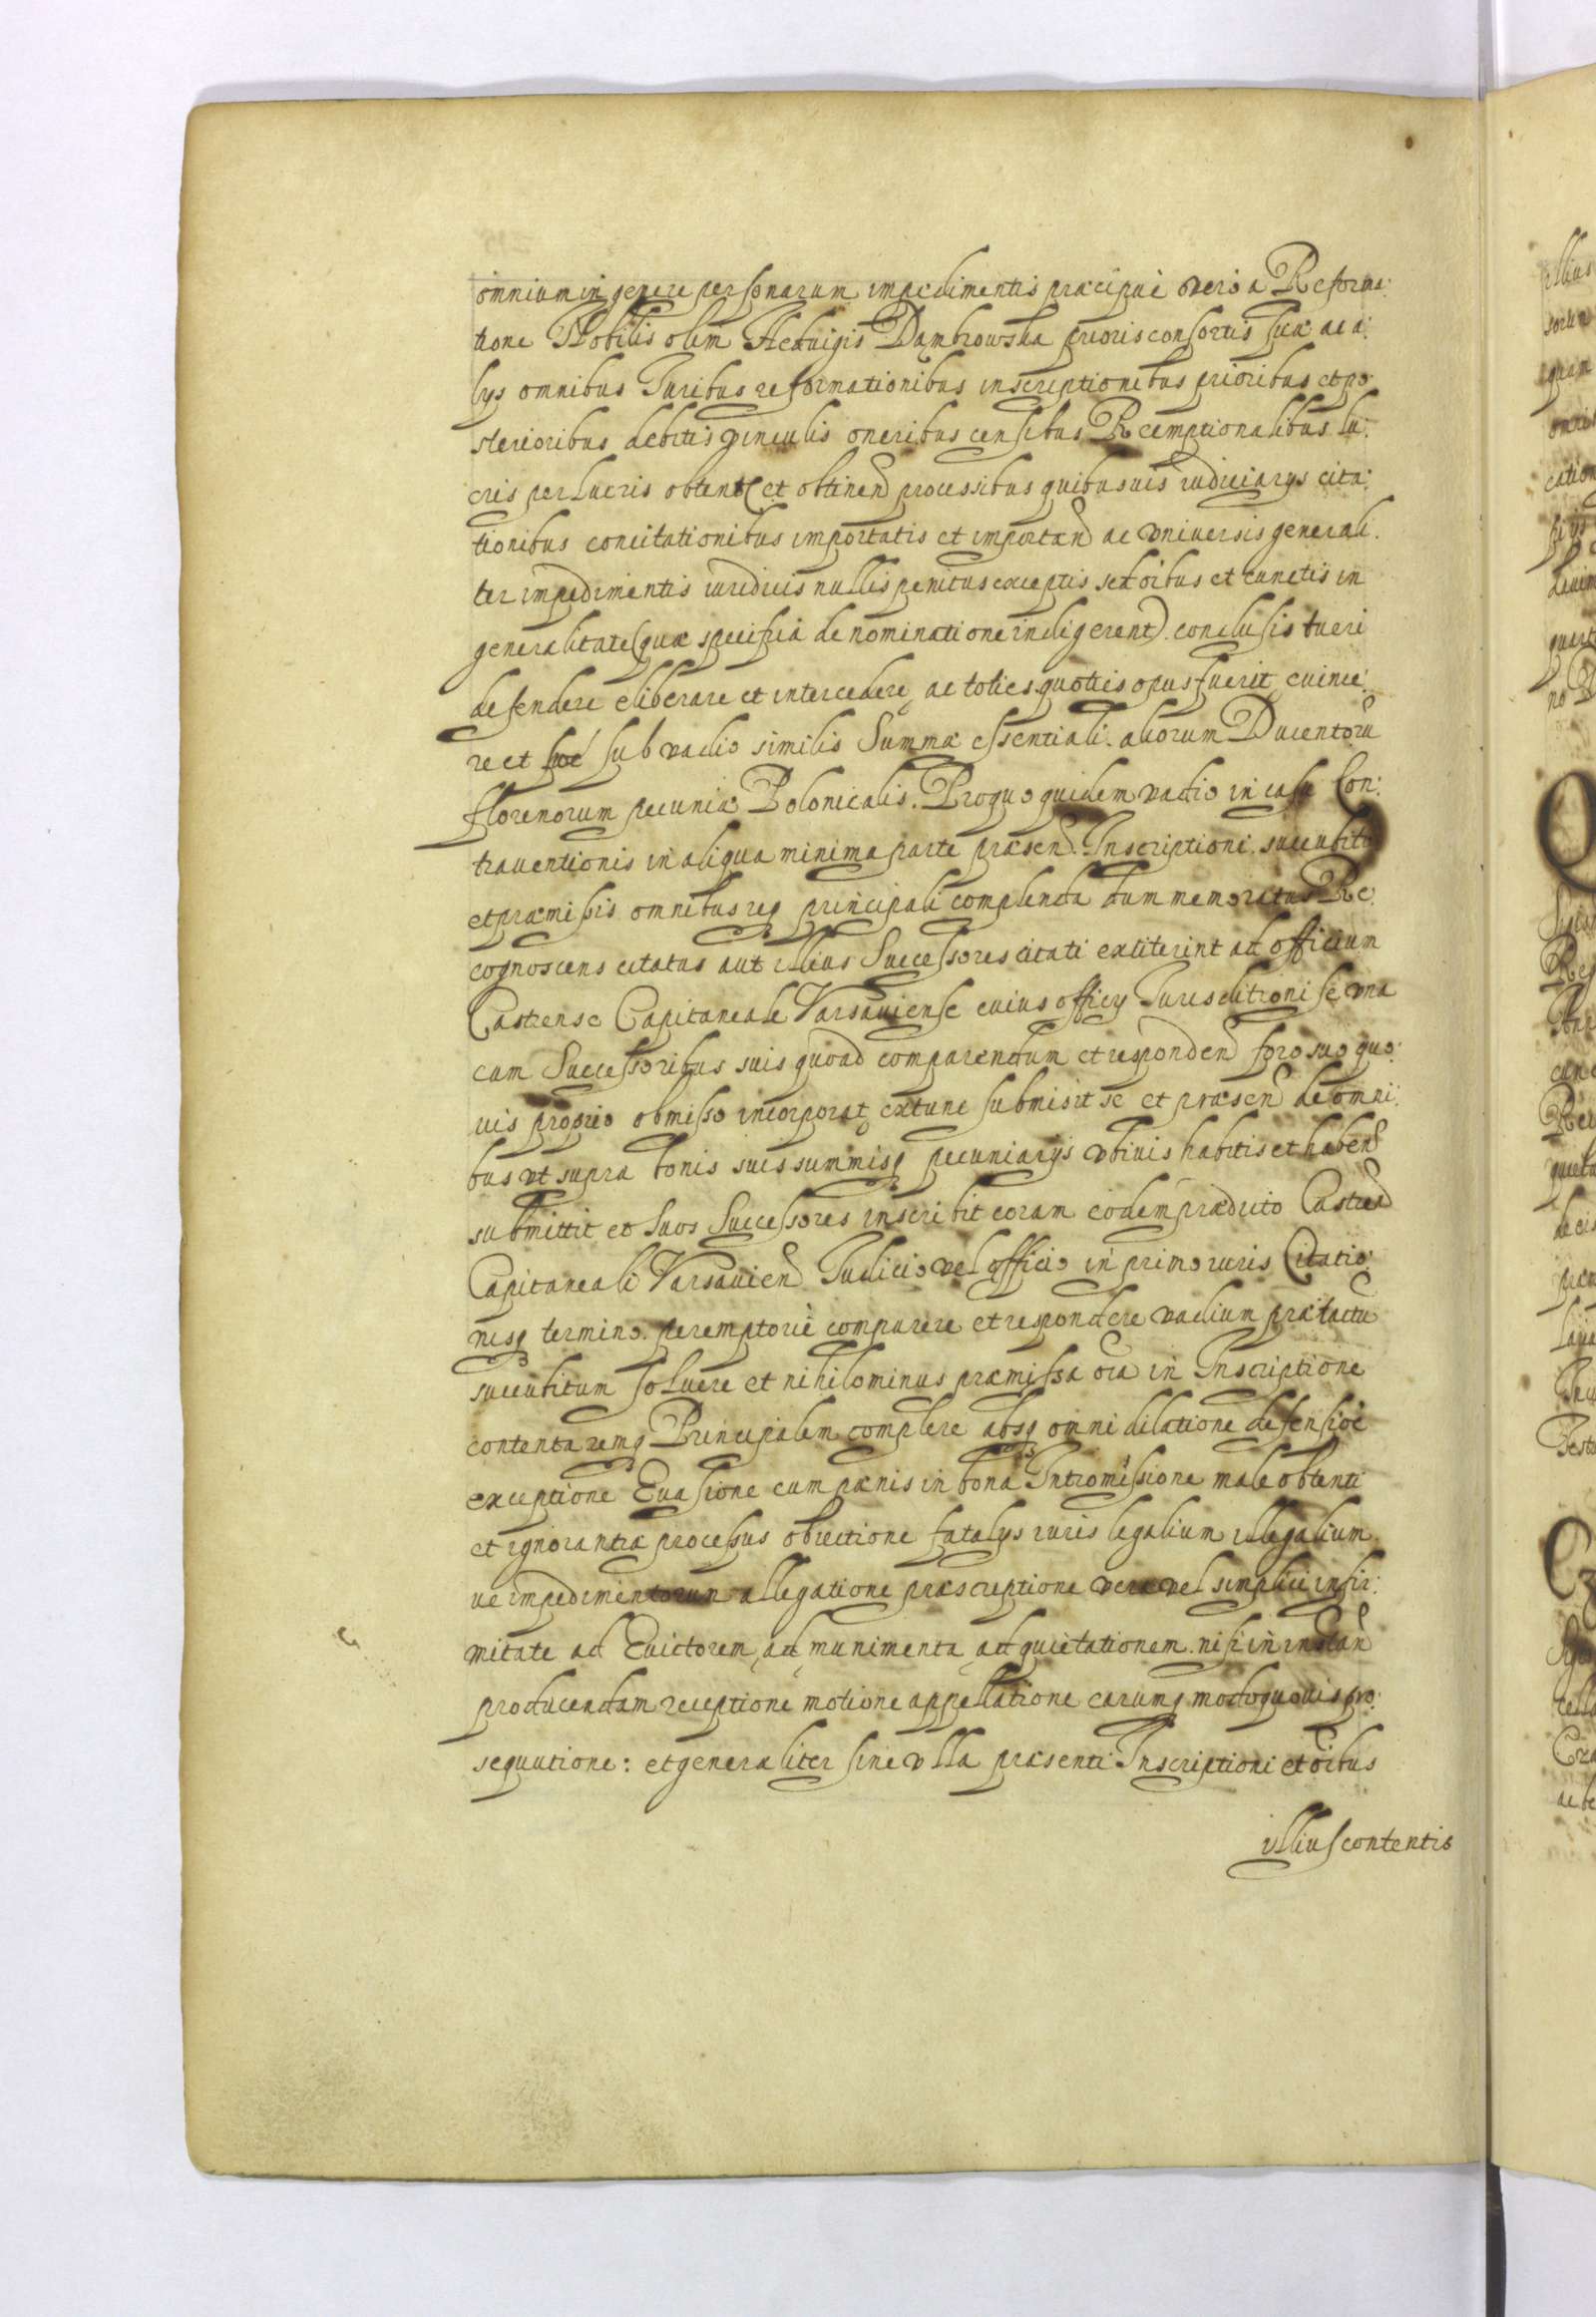 omnium in genere personarum impedimentis præcipuè verò a Reforma:
tione Nobilis olim Heduigis Dambrowska prioris consortis suæ ac a:
lijs omnibus Iuribus reformationibus inscriptionibus prioribus et po
sterioribus debitis vinculis oneribus censibus Reemptionalibus lu:
cris perlucris obtent et obtinend processibus quibusuis iudiciarys cita:
tionibus concitationibus importatis et importand ac vniuersis generali:
ter impedimentis iuridicis nullis penitus exceptis sed oibus et cunctis in
generalitate (quæ specifica de nominatione indigerent) conclusis tueri
defendere eliberare et intercedere, ac toties quoties opus fuerit, euince:
re et hoc sub vadio similis Summæ essentiali. aliorum Ducentorū
florenorum pecuniæ Polonicalis. Pro quo quidem vadio in casu Con:
trauentionis in aliqua minima parte præsen. Inscriptioni. succubito
et præmissis omnibus req principali complenda dum memoratus Re
cognoscens citatus aut illius Successores citati extiterint ad officium
Castrense Capitaneale Varsauiense cuius officy Iurisditioni se vna
cum Successoribus suis quoad comparendum et responden foro suo quo:
uis proprio obmisso incorporat, extunc submisit se et præsen de omni:
bus vt supra bonis suis summisq pecuniarys vbiuis habitis et haben
submittit et Suos Successores inscribit coram eodem prædicto Castren
Capitaneali Varsauien Iudicio vel officio in primo iuris Citatio:
nisq termino peremptoriè comparere et respondere vadium prætactū
succubitum soluere et nihilominus præmissa oīa in Inscriptione
contenta remq Principalem complere absq omni dilatione defensiōe
exceptione Euasione cum pænis in bona Intromissione male obtenti
et ignorantiæ processus obiectione fatalys iuris legalium illegalium
ue impedimentorum allegatione præscriptione vera vel simplici infir:
mitate ad Euictorem, ad munimenta, ad quietationem nisi in instan
producendam receptione motione appellatione earumq modo quouis pro:
sequutione: et generaliter sine vlla præsenti Inscriptioni et oibus
illius contentis